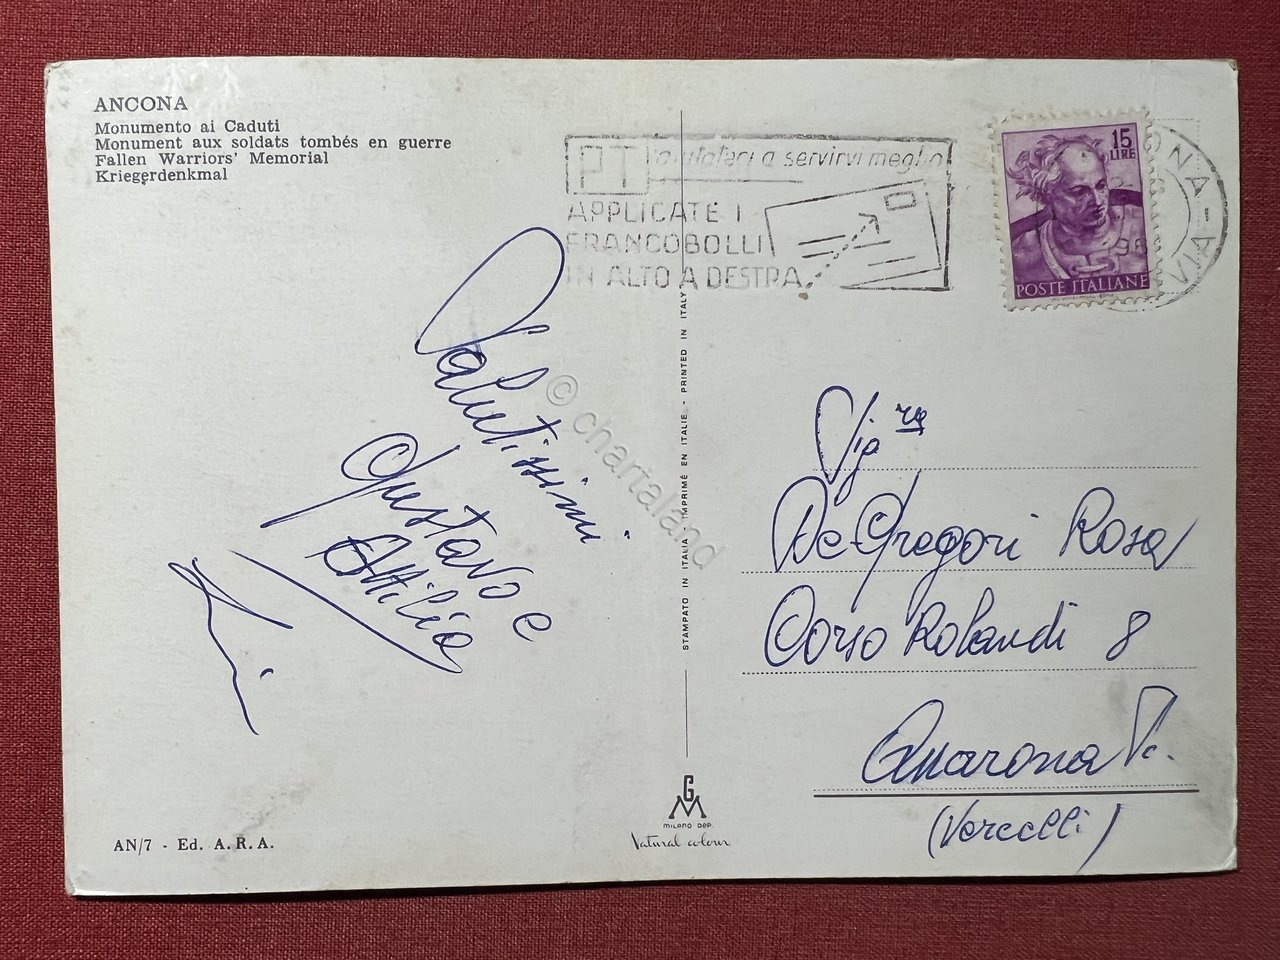 ANCONA
Monumento ai Caduti
Monument aux soldats tombés en guerre
Fallen Warriors' Memorial
Kriegerdenkmal
PT aiutateci a servirvi meglio
APPLICATE I
FRANCOBOLLI
IN ALTO A DESTRA
15
LIRE
POSTE ITALIANE
Salutissimi
Gustavo e
Attilio
Sig.re
De-Gregori Rosa
Corso Rolandi 8
Quarona
(Vercelli)
STAMPATO IN ITALIA - IMPRIMÉ EN ITALIE - PRINTED IN ITALY
© chartaland
GM
MILANO DEP.
Natural colour
AN/7 - Ed. A. R. A.